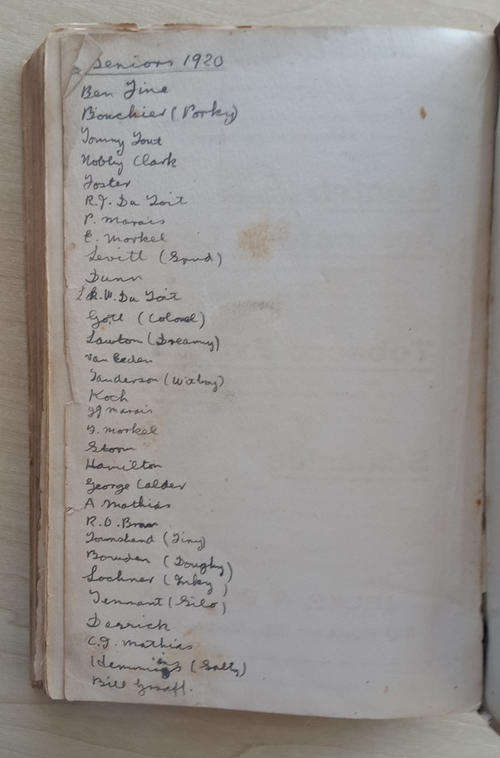 Seniors 1920
Ben Fine
Bouchier (Porky)
Tommy Tout
Nobby Clark
Foster
R.J. Du Toit
P. Marais
E. Morkel
Levitt (Spud)
Dunn
R.W. Du Toit
Gott (Colonel)
Lawton (Dreamy)
Van Eeden
Koch
JJ Marais
J. Morkel
Storm
Hamilton
George Calder
A Mathias
R.O. Braar
Townshend (Tiny)
Bowden (Doughy)
Lochner (Inky)
Tennant (Silo)
Derrick
C.J. Mathias
Hemmings (Salty)
Bill Graaff.